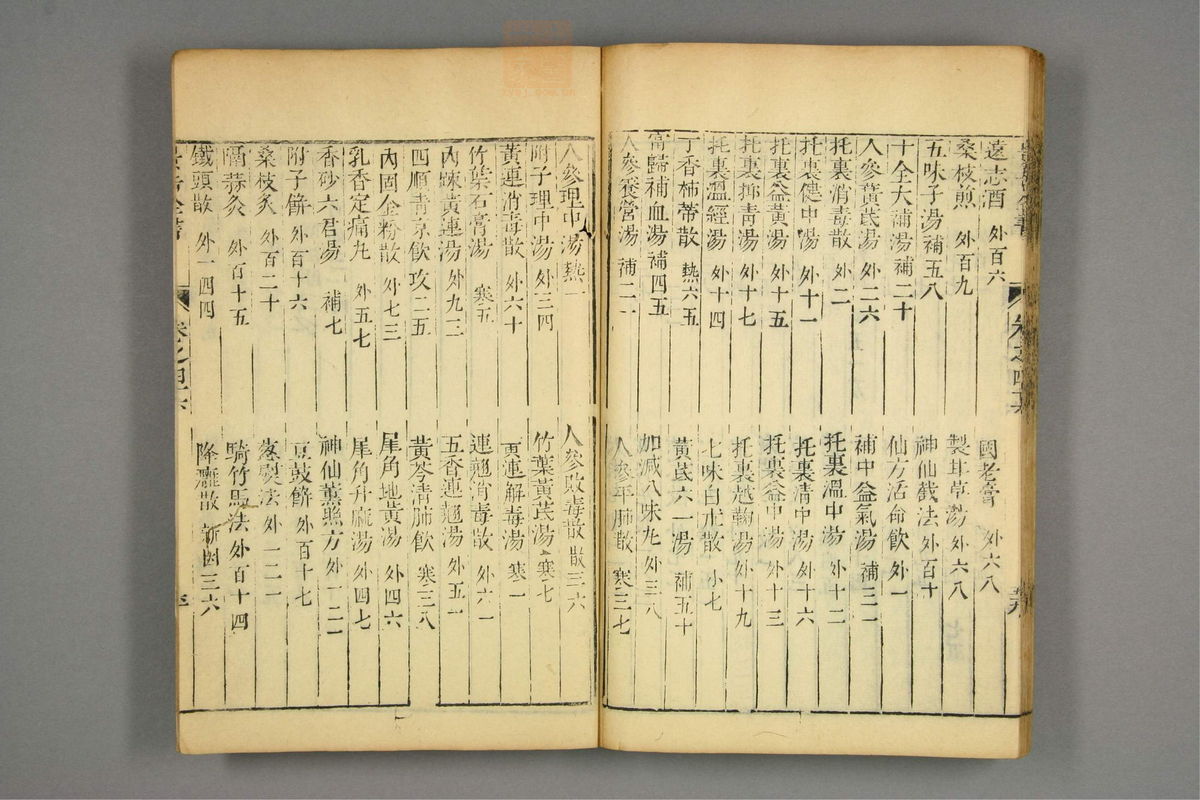 遠志酒 外百六 國老膏 外六八
桑枝煎 外百九 製甘草湯 外六八
五味子湯 補五八 神仙截法 外百十
十全大補湯 補二十 仙方活命飲 外一
人參黃芪湯 外二六 補中益氣湯 補三一
托裏消毒散 外二 托裏溫中湯 外十二
托裏健中湯 外十一 托裏清中湯 外十六
托裏益黃湯 外十五 托裏益中湯 外十三
托裏抑青湯 外十七 托裏越鞠湯 外十九
托裏溫經湯 外十四 七味白朮散 小七
丁香柿蒂散 熱六五 黃芪六一湯 補五十
當歸補血湯 補四五 加減八味丸 外三八
人參養營湯 補二一 人參平肺散 寒三七
卷之四六
人參理中湯 熱一 人參敗毒散 散三六
附子理中湯 外三四 竹葉黃芪湯 寒七
黃連消毒散 外六十 黃連解毒湯 寒一
竹葉石膏湯 寒五 連翹消毒散 外六一
內疎黃連湯 外九二 五香連翹湯 外五一
四順清涼飲 攻二五 黃芩清肺飲 寒三八
內固金粉散 外七三 犀角地黃湯 外四六
乳香定痛丸 外五七 犀角升麻湯 外四七
香砂六君湯 補七 神仙薰照方 外一二二
附子餅 外百十六 豆豉餅 外百十七
桑枝灸 外百二十 蒸熨法 外一二一
隔蒜灸 外百十五 騎竹馬法 外百十四
鐵頭散 外一四四 降癰散 新因三六
景岳全書 卷之四六